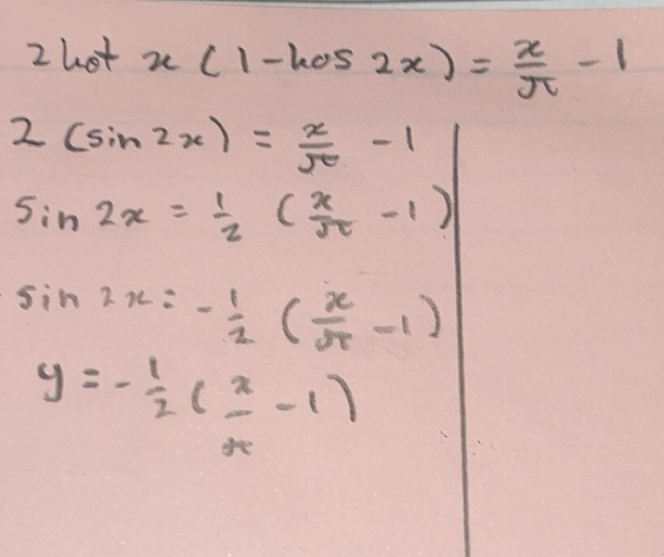 2 kot x (1 - kos 2x) = x/π - 1
2 (sin 2x) = x/π - 1
sin 2x = 1/2 (x/π - 1)
sin 2x = - 1/2 (x/π - 1)
y = - 1/2 (x/π - 1)